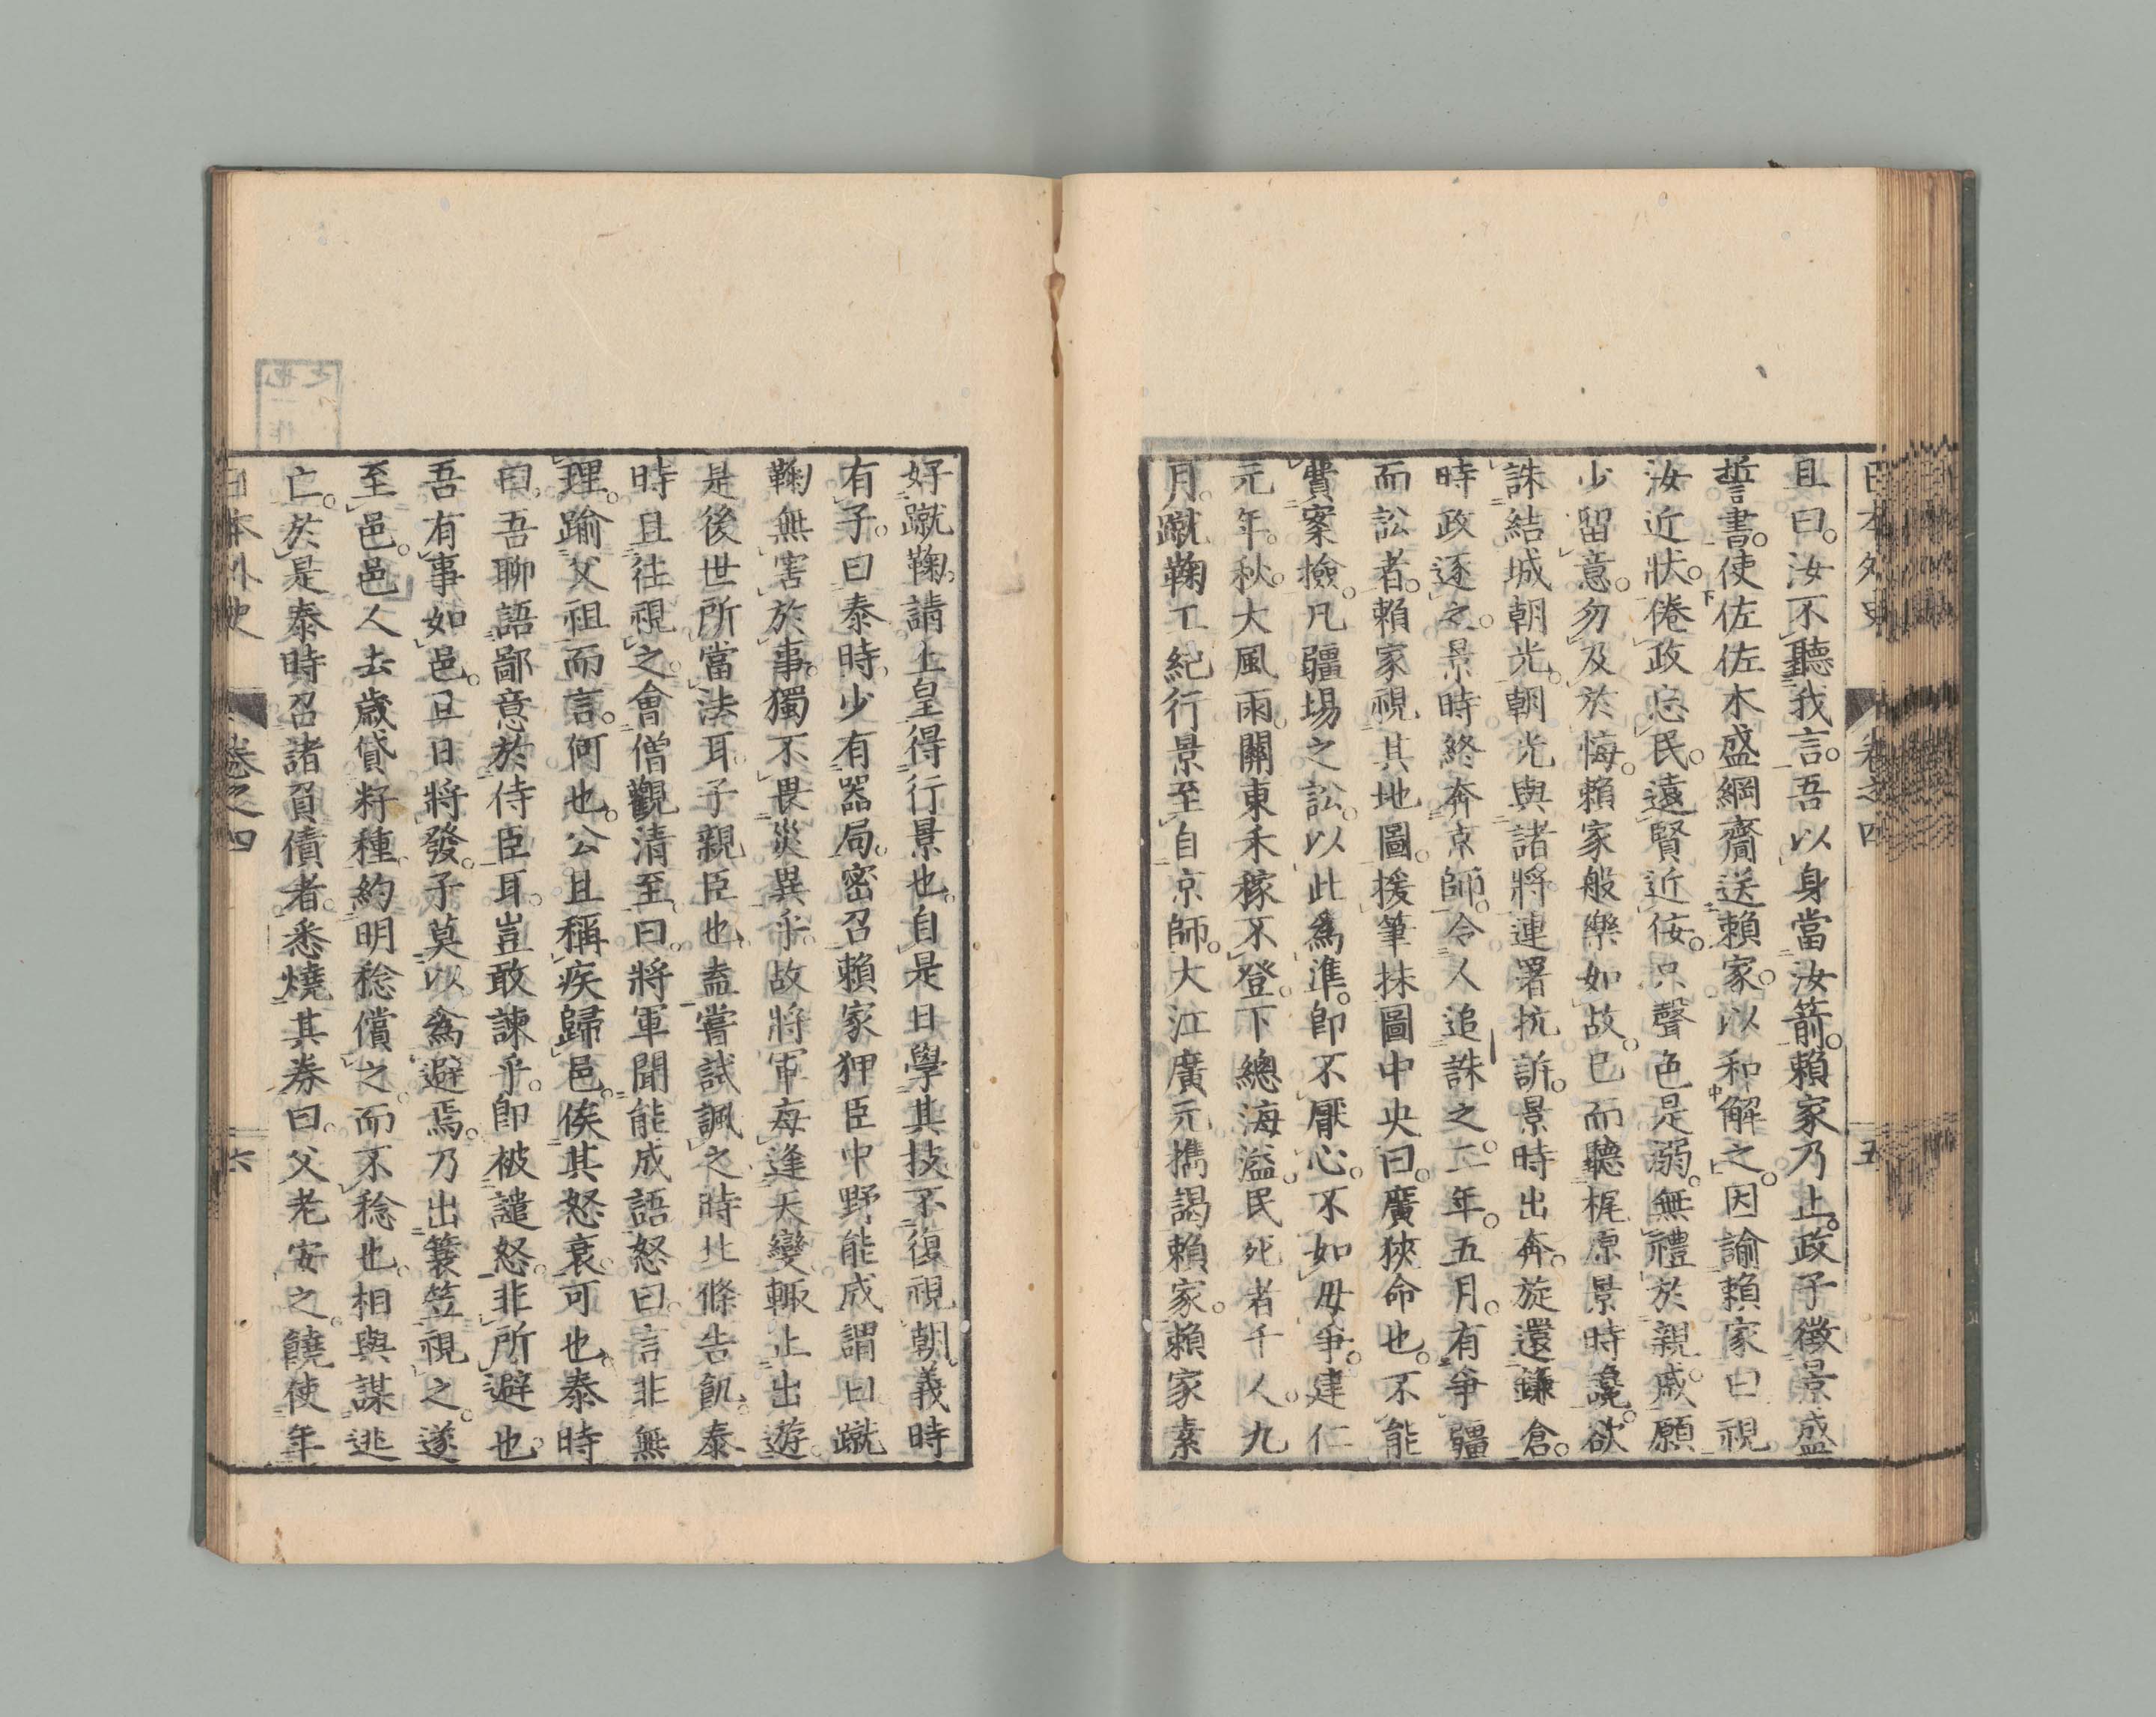 日本外史 卷之四 五
且曰。汝不聽我言。吾以身當汝箭。賴家乃止。政子徵景盛
誓書。使佐佐木盛綱齎送賴家。以和解之。因諭賴家曰視
汝近狀。倦政忘民。遠賢近佞。只聲色是溺。無禮於親戚。願
少留意。勿及於悔。賴家般樂如故。已而聽梶原景時讒。欲
誅結城朝光。朝光與諸將連署抗訴。景時出奔。旋還鎌倉。
時政逐之。景時終奔京師。令人追誅之。二年。五月。有爭疆
而訟者。賴家視其地圖。援筆抹圖中央曰。廣狹命也。不能
費案撿。凡疆場之訟。以此爲準。卽不厭心。不如毋爭。建仁
元年。秋。大風雨。關東禾稼不登。下總海溢。民死者千人。九
月。蹴鞠工紀行景至自京師。大江廣元擕謁賴家。賴家素
好蹴鞠。請上皇得行景也。自是日學其技。不復視朝。義時
有子。曰泰時。少有器局。密召賴家狎臣中野能成謂曰蹴
鞠無害於事。獨不畏災異乎。故將軍每逢天變輙止出遊。
是後世所當法耳。子親臣也。盍嘗試諷之。時北條告飢。泰
時且往視之。會僧觀清至曰。將軍聞能成語怒曰。言非無
理。踰父祖而言。何也。公且稱疾歸邑。俟其怒衰可也。泰時
曰。吾聊語鄙意於侍臣耳。豈敢諫乎。卽被譴怒。非所避也。
吾有事如邑。旦日將發。子莫以爲避焉。乃出簑笠視之。遂
至邑。邑人去歲貸籽種。約明稔償之。而不稔也。相與謀逃
亡。於是泰時召諸負債者。悉燒其券曰。父老安之。饒使年
日本外史 卷之四 六